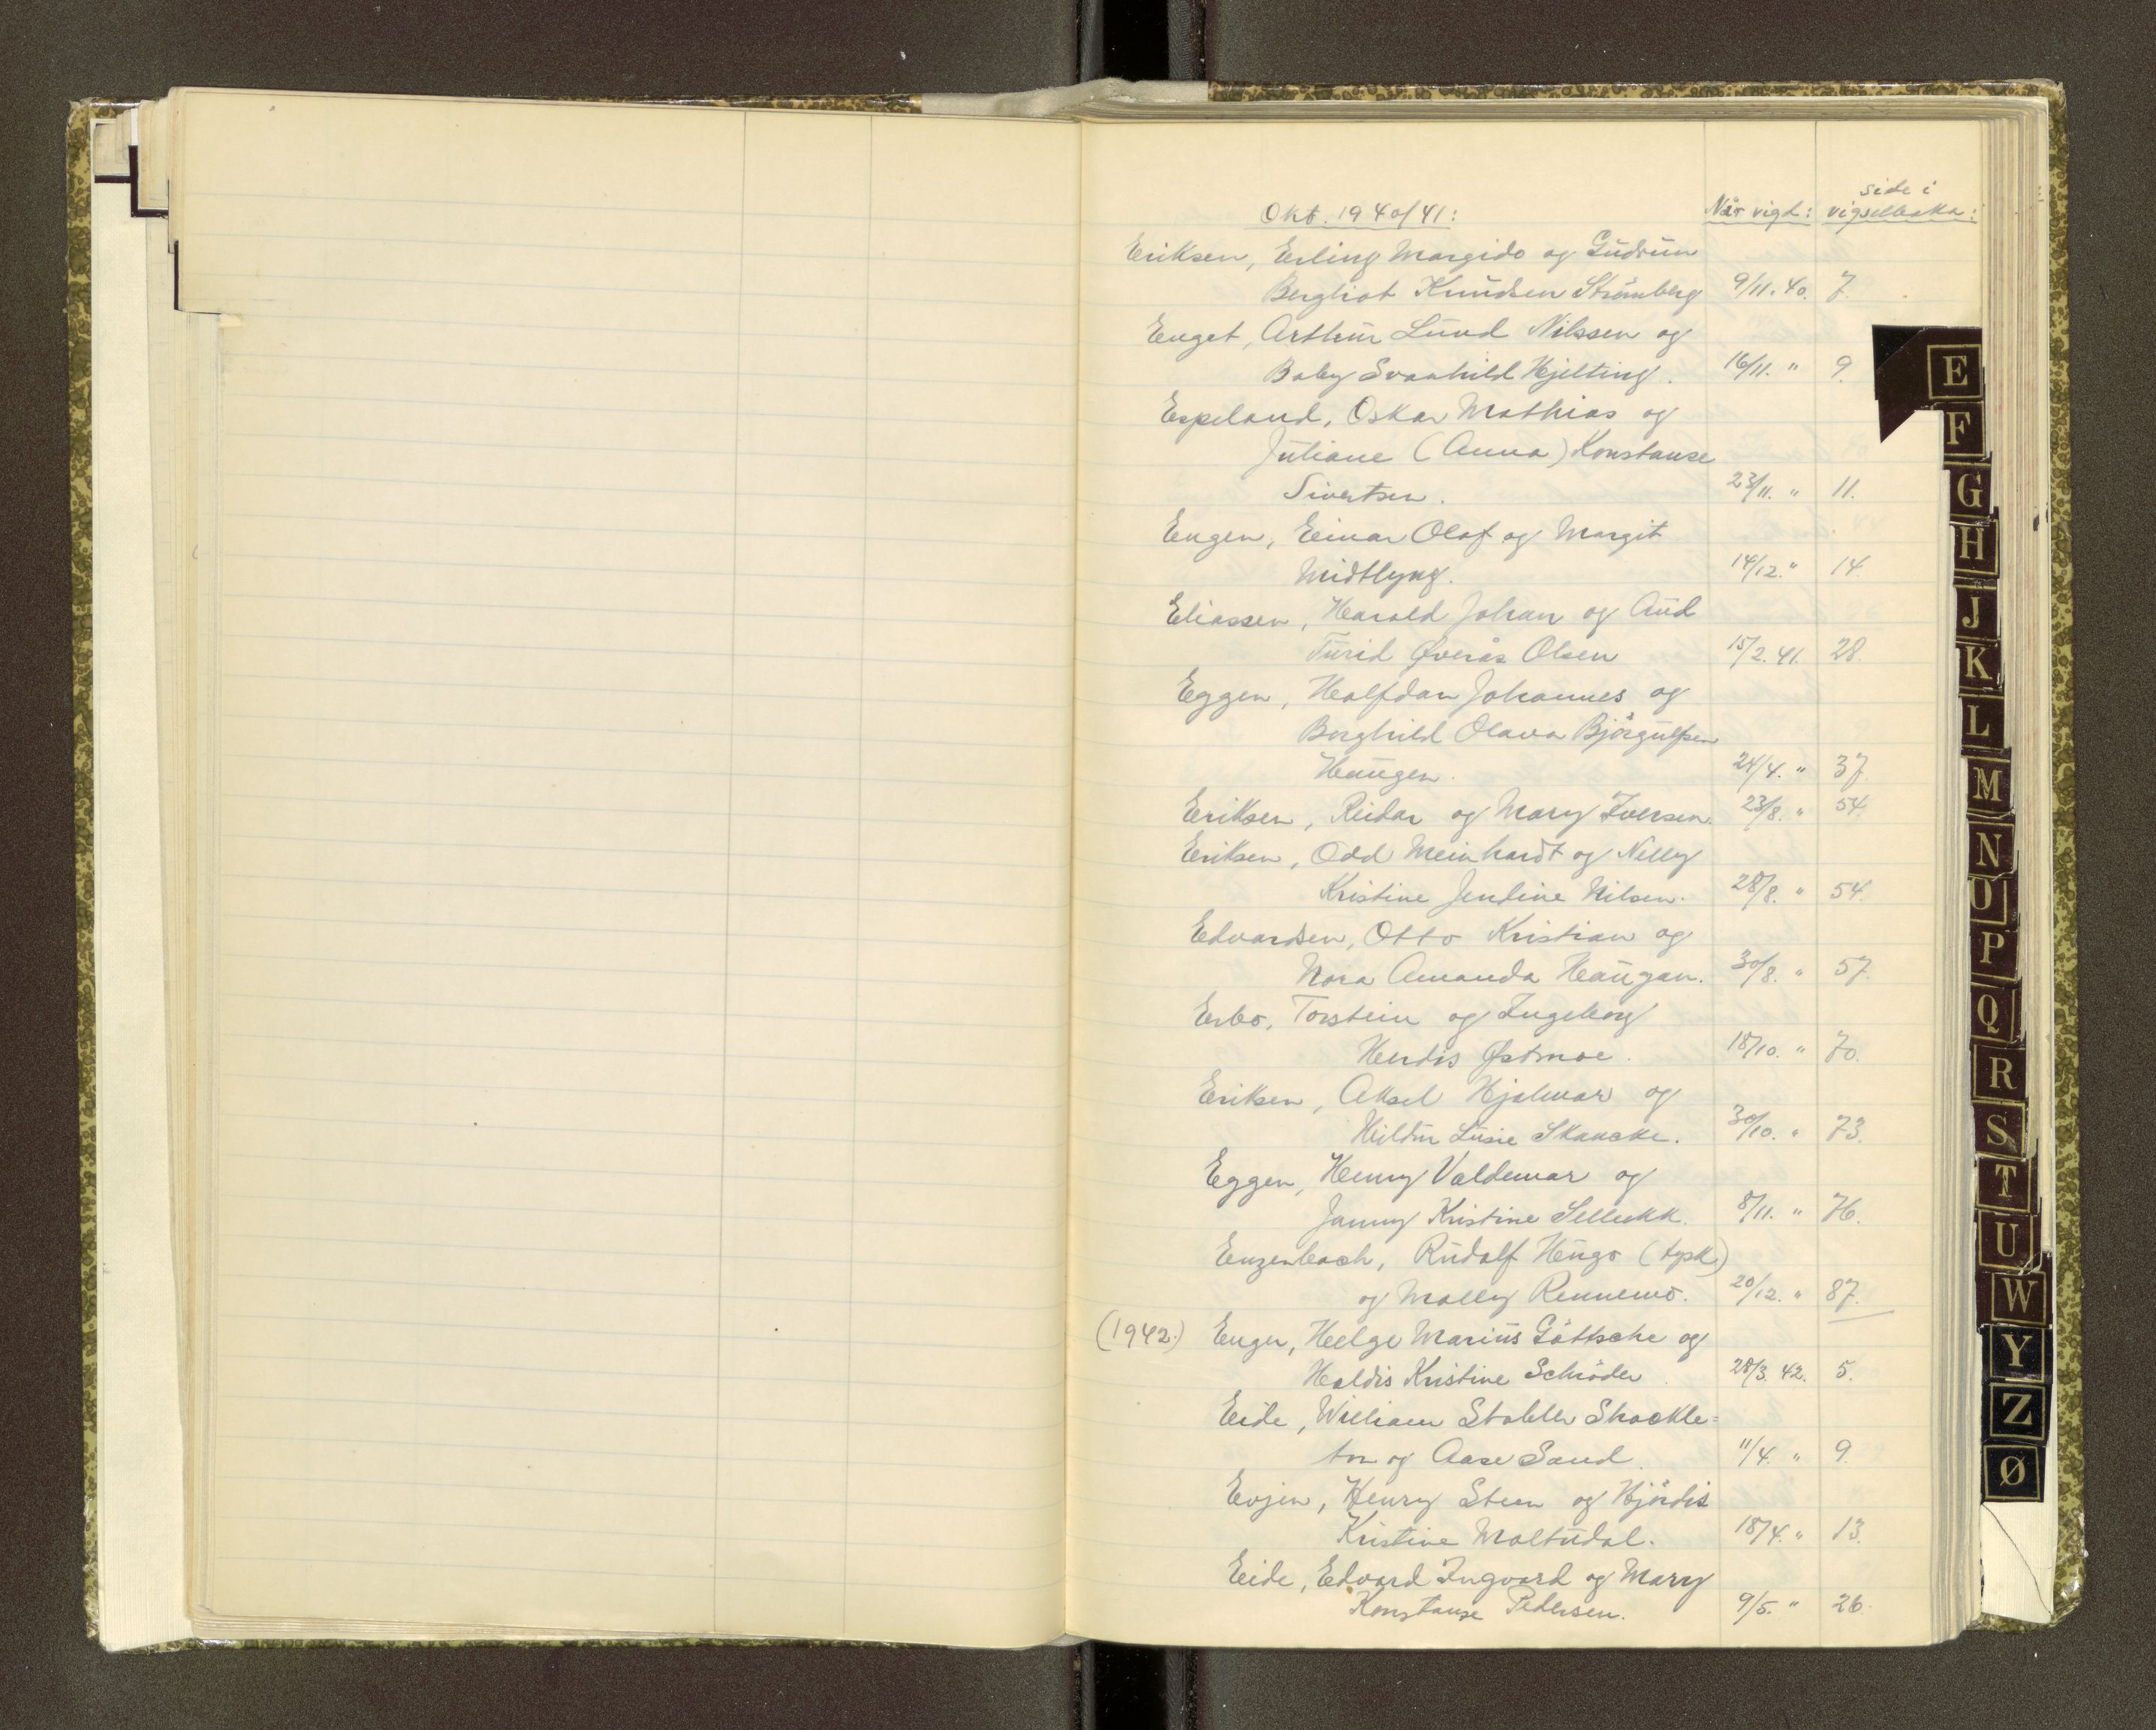 side i
Okt. 1940/41: Når vigd: vigselboka:
Eriksen, Erling Margido og Gudrun
Bergliot Knudsen Strømberg 9/11. 40. 7.
Enget, Arthur Lund Nilssen og
Baby Svanhild Hjelting. 16/11. " 9.
Espeland, Oskar Mathias og
Juliane (Anna) Konstanse
Sivertsen. 23/11. " 11.
Engen, Einar Olaf og Margit
Midtlyng. 14/12. " 14
Eliassen, Harald Johan og Aud
Turid Øverås Olsen 15/2. 41. 28.
Eggen, Halfdan Johannes og
Borghild Olava Bjørgulfsen
Haugen. 24/4. " 37.
Eriksen, Reidar og Mary Iversen. 23/8. " 54.
Eriksen, Odd Meinhardt og Nelly
Kristine Jendine Nilsen. 28/8. " 54.
Edvardsen, Otto Kristian og
Nora Amanda Haugan. 30/8. " 57.
Esbo, Torstein og Ingeborg
Herdis Østmoe. 18/10. " 70.
Eriksen, Aksel Hjalmar og
Hildur Lusie Skancke. 30/10. " 73.
Eggen, Henry Valdemar og
Janny Kristine Sellukk. 8/11. " 76.
Enzenbach, Rudolf Hugo (tysk)
og Molly Rennemo. 20/12. " 87.
(1942.) Enger, Helge Marius Gøttsche og
Haldis Kristine Schrøder. 28/3. 42. 5.
Eide, William Stabell Shackle=
ton og Aase Sand. 11/4. " 9.
Evjen, Henry Steen og Hjørdis
Kristine Maltudal. 18/4. " 13.
Eide, Edvard Ingvard og Mary
Konstanse Pedersen. 9/5. " 26.
E
F
G
H
J
K
L
M
N
O
P
Q
R
S
T
U
W
Y
Z
Ø